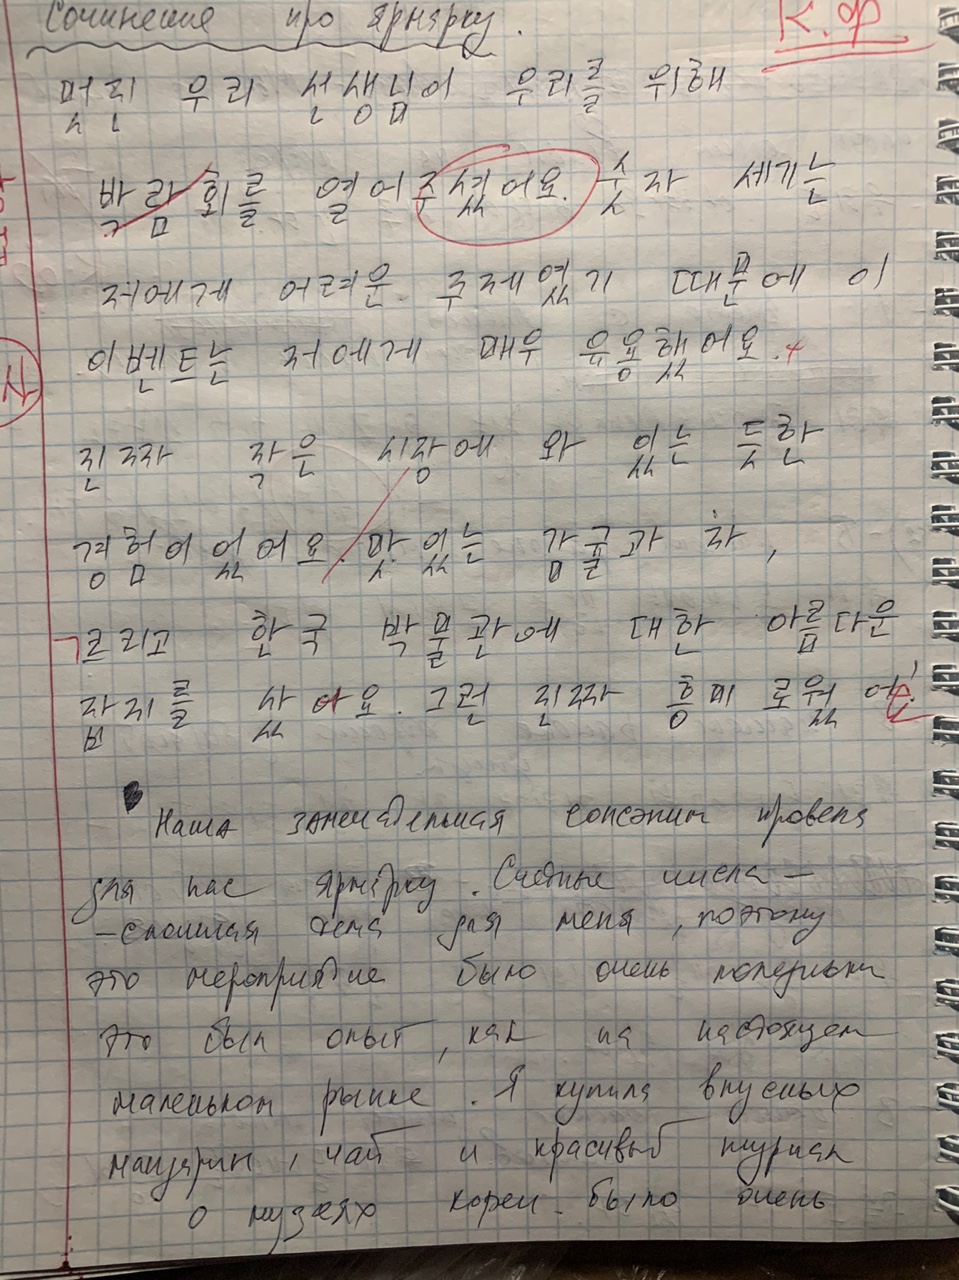 Сочинение про ярмарку.
К.Ф
멋진 우리 선생님이 우리를 위해
박람회를 열어주셨어요. 숫자 세기는
저에게 어려운 주제였기 때문에 이
이벤트는 저에게 매우 유용했어요.
진짜 작은 시장에 와 있는 듯한
경험이었어요. 맛있는 감귤과 차,
그리고 한국 박물관에 대한 아름다운
잡지를 샀어요. 그런 진짜 흥미로웠어!
Наша замечательная сонсэним провела
для нас ярмарку. Счётные числа –
– сложная тема для меня, поэтому
это мероприятие было очень полезным
это был опыт, как на настоящем
маленьком рынке. Я купила вкусных
мандарин, чай и красивый журнал
о музеях кореи. было очень